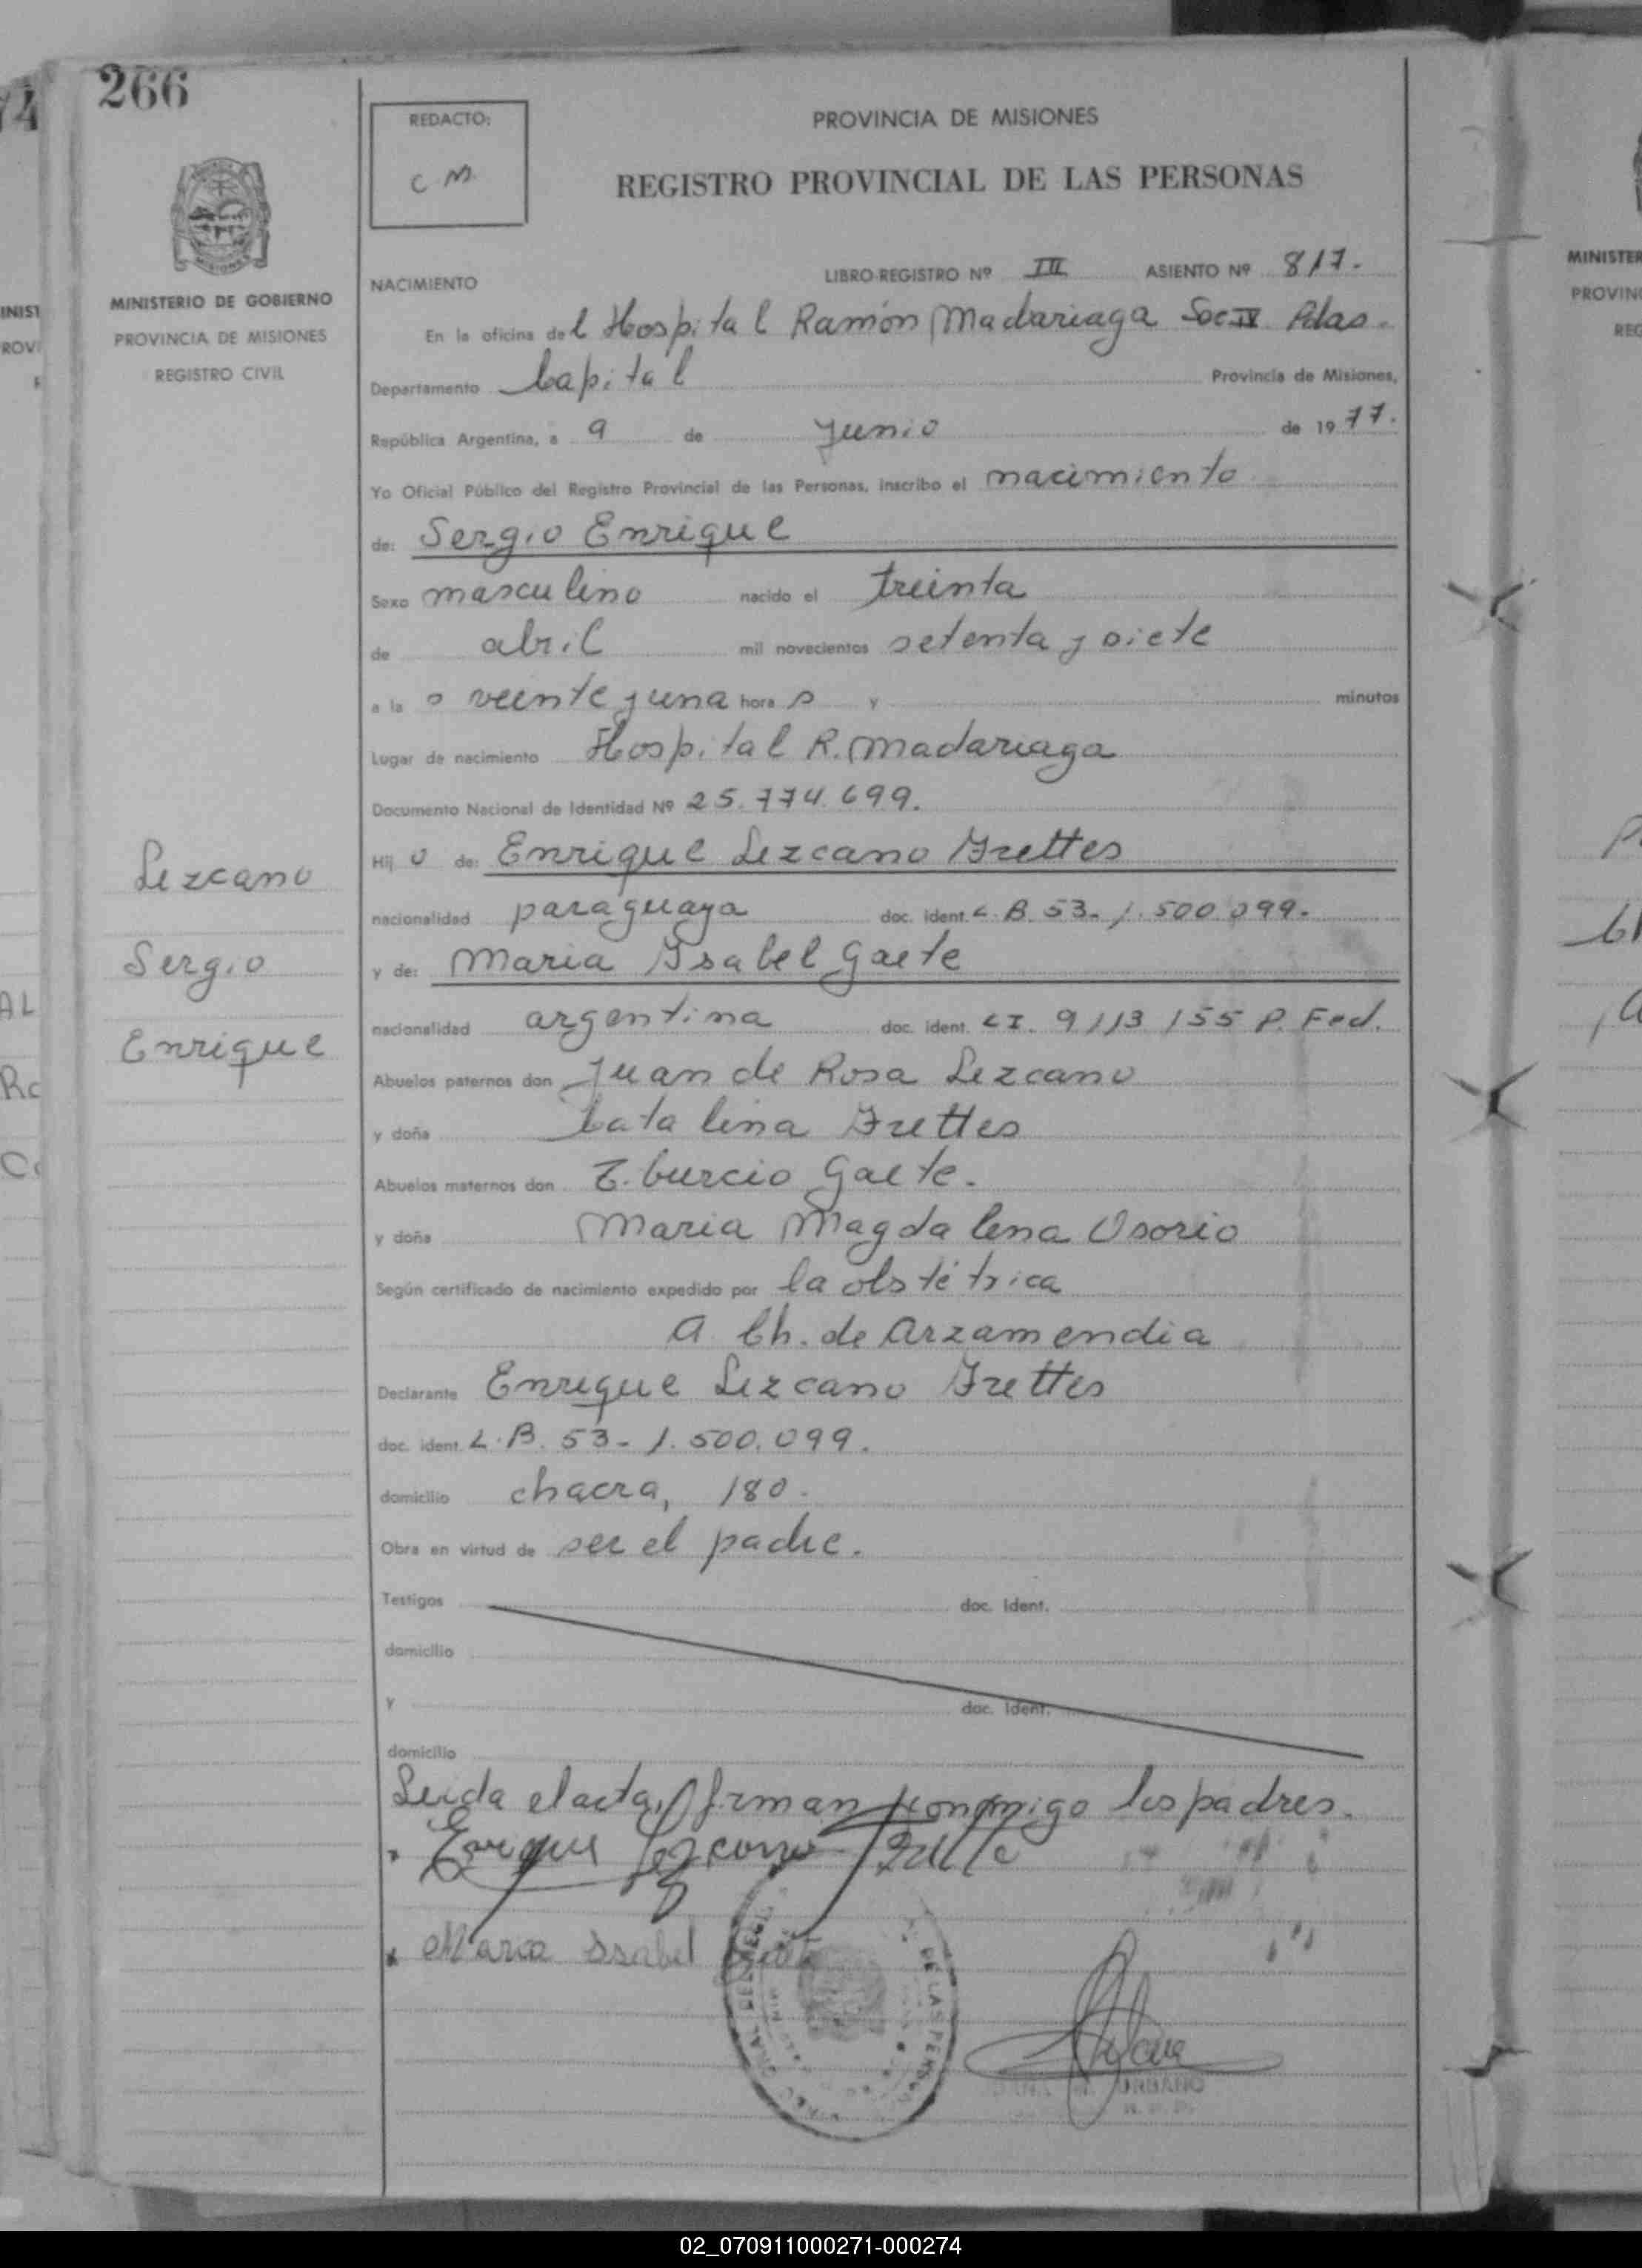 266
REDACTO:
C M
PROVINCIA DE MISIONES
REGISTRO PROVINCIAL DE LAS PERSONAS
MINISTERIO DE GOBIERNO
PROVINCIA DE MISIONES
REGISTRO CIVIL
NACIMIENTO LIBRO-REGISTRO Nº III ASIENTO Nº 817.
En la oficina del Hospital Ramón Madariaga Sec IV Pdas.
Departamento Capital Provincia de Misiones,
República Argentina, a 9 de Junio de 1977.
Yo Oficial Público del Registro Provincial de las Personas, inscribo el nacimiento
de: Sergio Enrique
Sexo masculino nacido el treinta
de abril mil novecientos setenta y siete
a la s veinte y una hora s y minutos
Lugar de nacimiento Hospital R. Madariaga
Documento Nacional de Identidad Nº 25.774.699.
Hij o de: Enrique Lezcano Frettes
nacionalidad paraguaya doc. ident. L.B. 53-1.500.099.
y de: Maria Ysabel Gaete
nacionalidad argentina doc. ident. C I. 9113155 P. Fed.
Abuelos paternos don Juan de Rosa Lezcano
y doña Catalina Frettes
Abuelos maternos don Tiburcio Gaete.
y doña Maria Magdalena Osorio
Según certificado de nacimiento expedido por la obstétrica
A Ch. de Arzamendia
Declarante Enrique Lezcano Frettes
doc. ident. L.B. 53-1.500.099.
domicilio chacra, 180.
Obra en virtud de ser el padre.
Testigos doc. Ident.
domicilio
y doc. Ident.
domicilio
Leida el acta, firman conmigo los padres.
Enrique Lezcano Frette
Maria Isabel
DE LAS PERSONAS
URBANO
Lezcano
Sergio
Enrique
MINISTER
PROVIN
REG
02_070911000271-000274